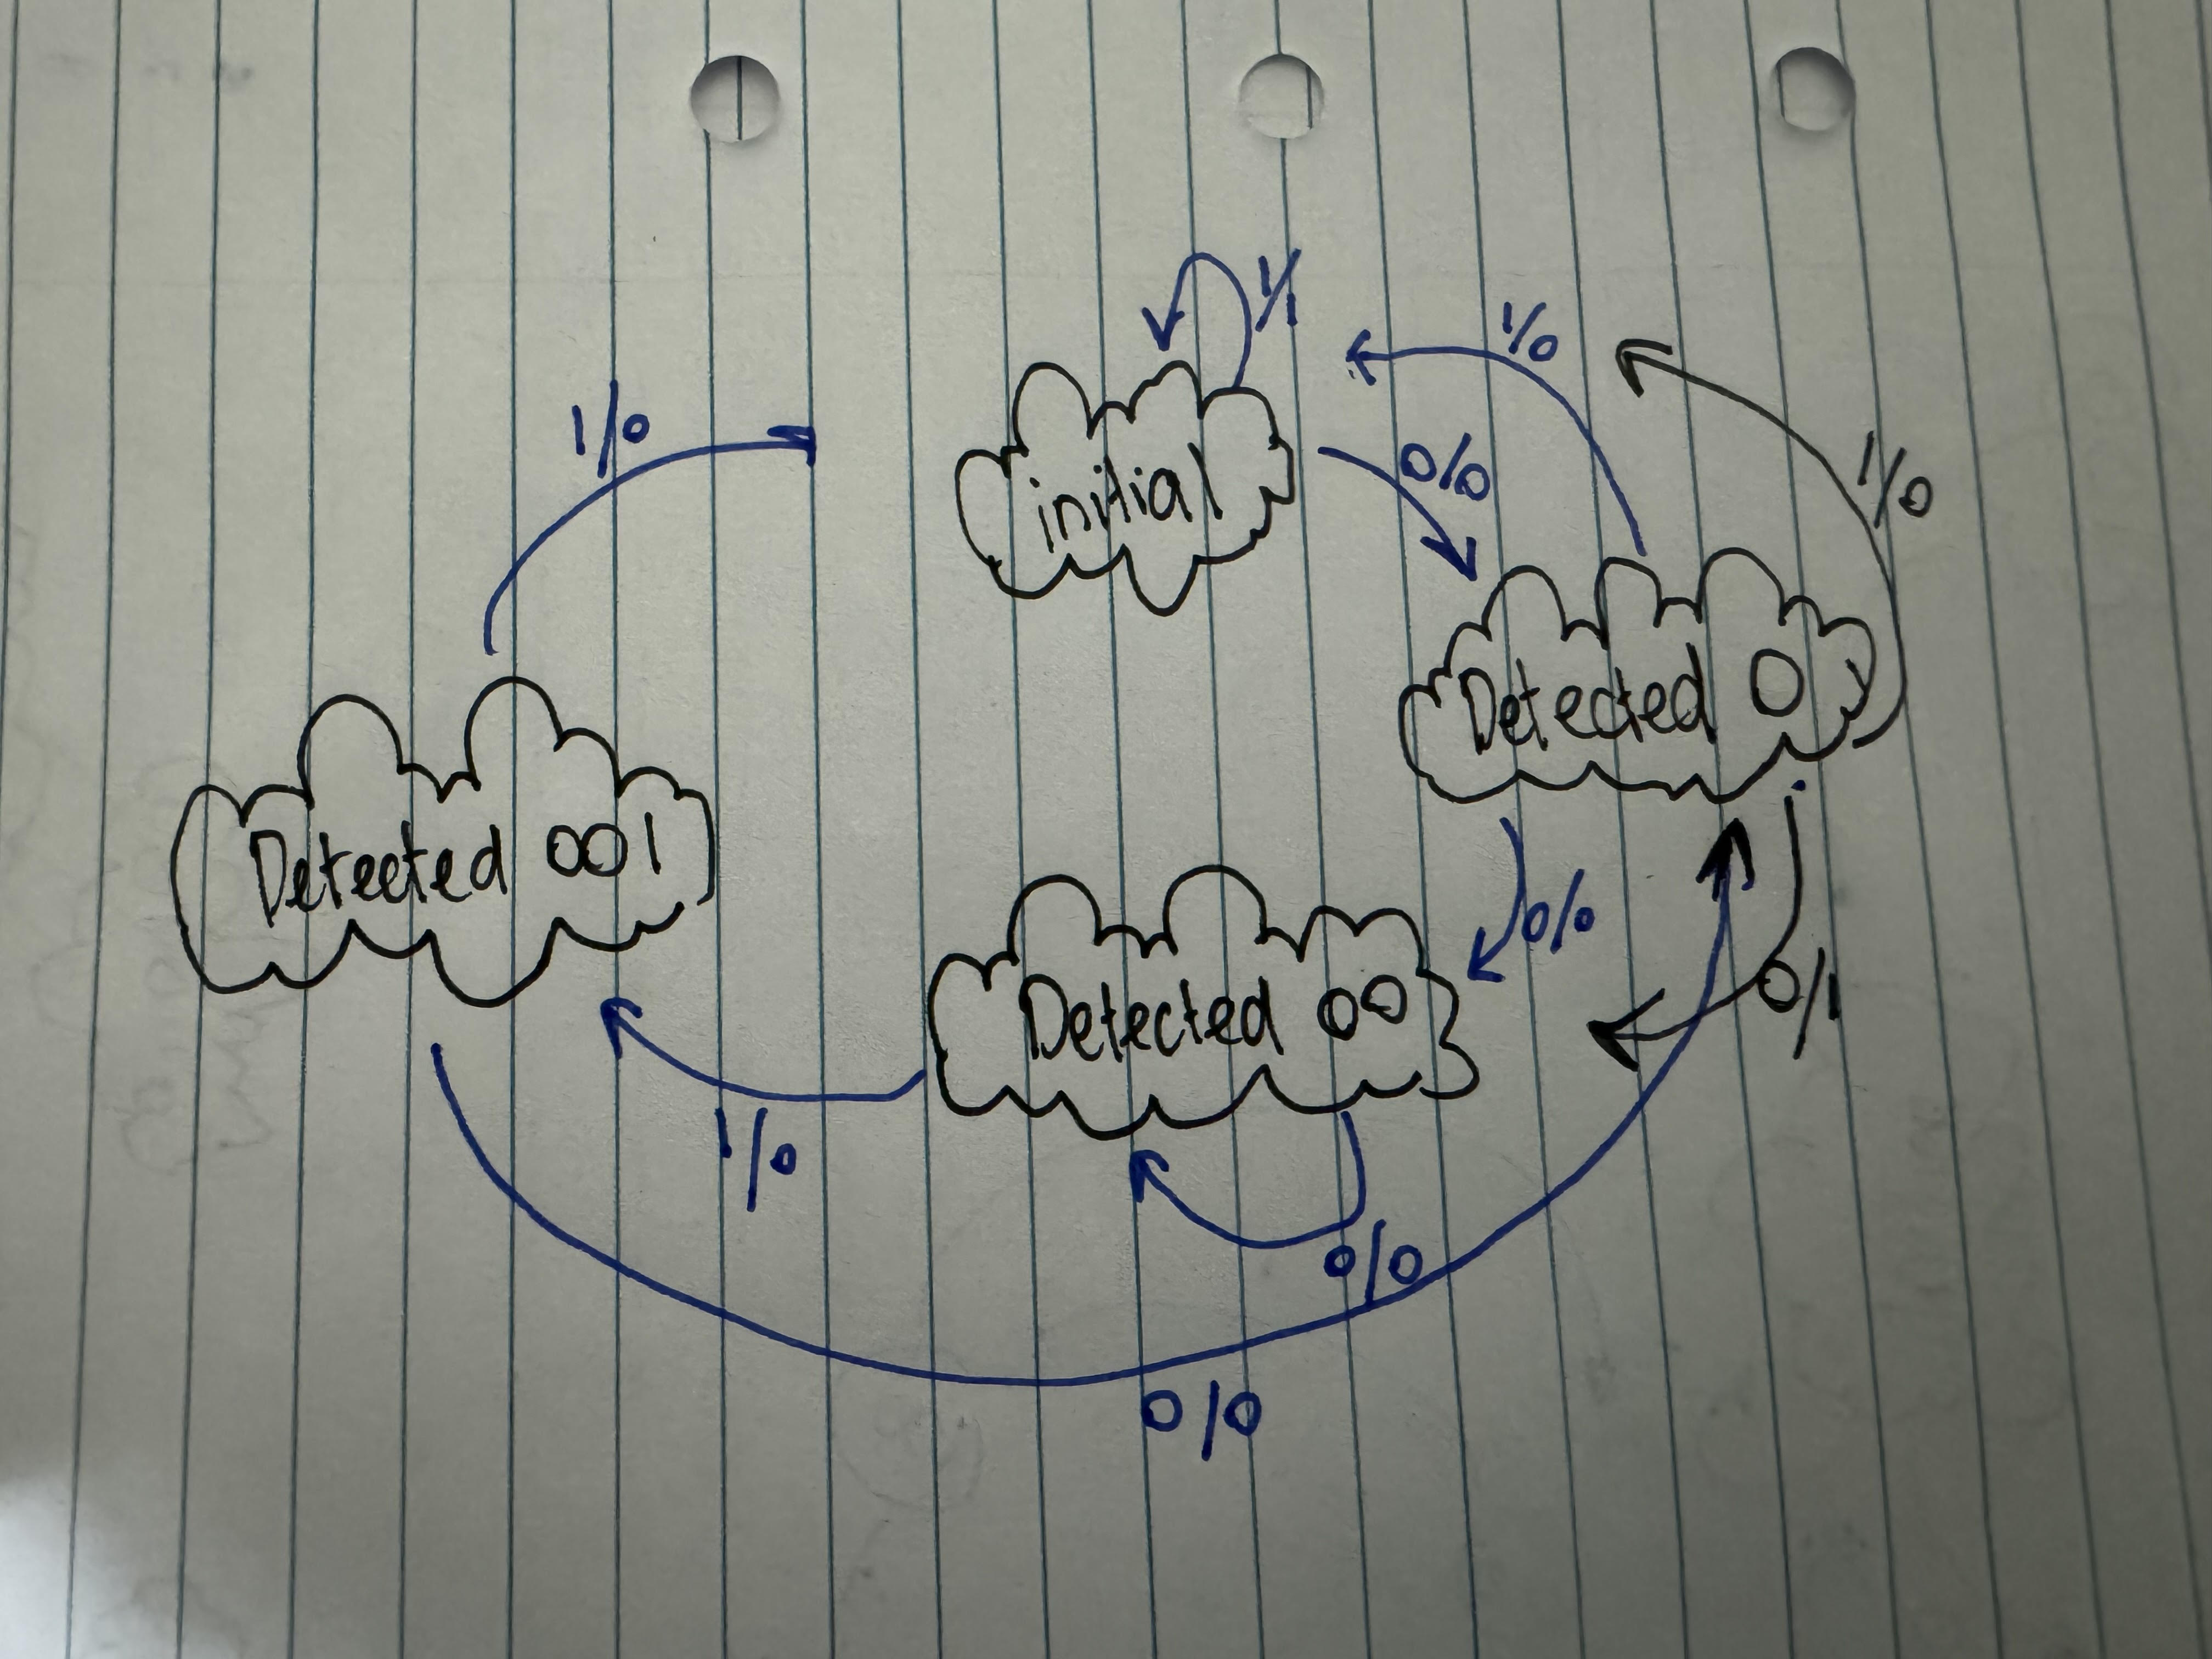 1/1
1/0
1/0
0/0
1/0
initial
Detected 0
Detected 001
0/0
Detected 00
0/1
1/0
0/0
0/0